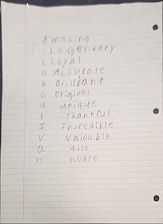 Amazing
Legendary
Loyal
Accurate
Brilliant
Original
unique
thankful
Incredible
Valuable
able
noble